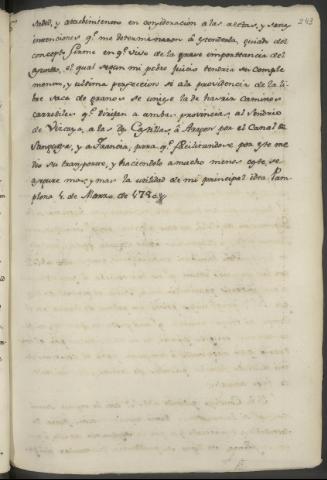 243
y atrebimiento en consideracion a las rectas, y sanas
intenciones q.e me determinaron à extenderla, guiado del
concepto firme en q.e vivo de la grave importtancia del
Asuntto, el qual segun mi pobre juicio tendria su comple
mento, y ultima perfeccion si a la providencia de la li
bre saca de granos se uniese la de havrir caminos
carretiles q.e dirijan a ambas provincias, al Señorio
de Vizcaya, a las dos Castillas, à Aragon por el Canal de
y a Francia, para q.e facilitandose por este me
dio su transporte, y haciendolo a mucho menos coste, se
asegure mas, y mas la utilidad de mi principal idea. Pam
plona 4. de Marzo de